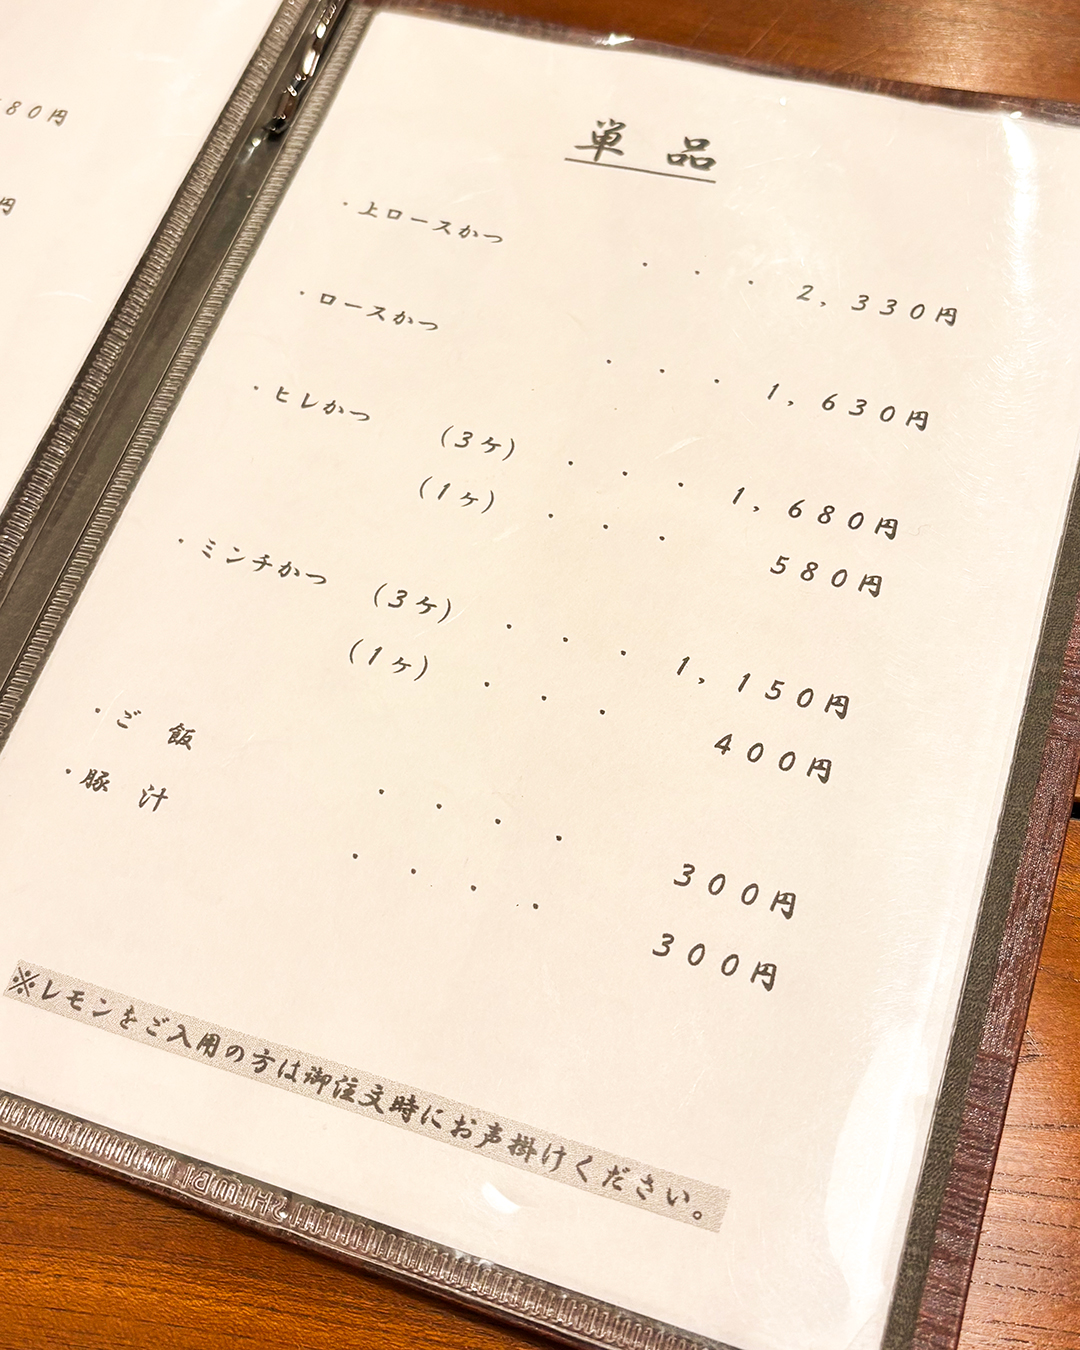 80円
円
単 品
・上ロースかつ ・・・ 2,330円
・ロースかつ ・・・ 1,630円
・ヒレかつ (3ヶ) ・・・ 1,680円
(1ヶ) ・・・ 580円
・ミンチかつ (3ヶ) ・・・ 1,150円
(1ヶ) ・・・ 400円
・ご 飯 ・・・・ 300円
・豚 汁 ・・・・ 300円
※レモンをご入用の方は御注文時にお声掛けください。
SHIMBI